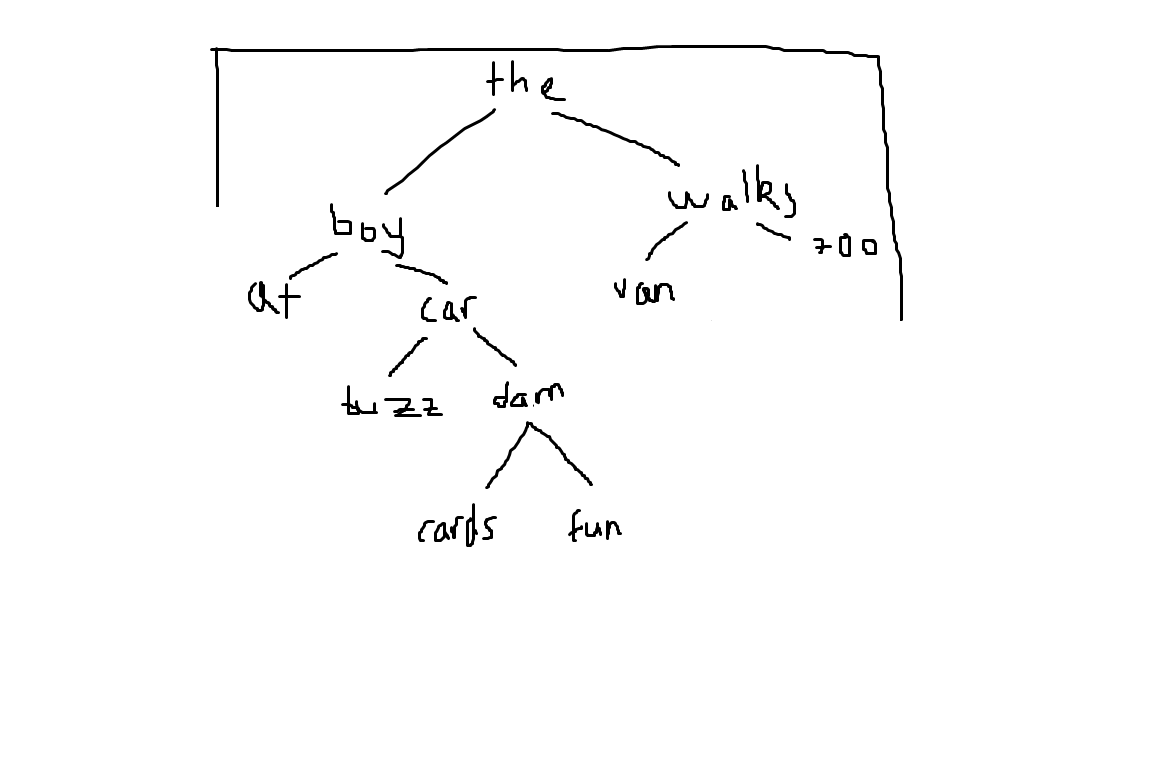 the
boy walks
at car van zoo
tuzz dam
cards fun